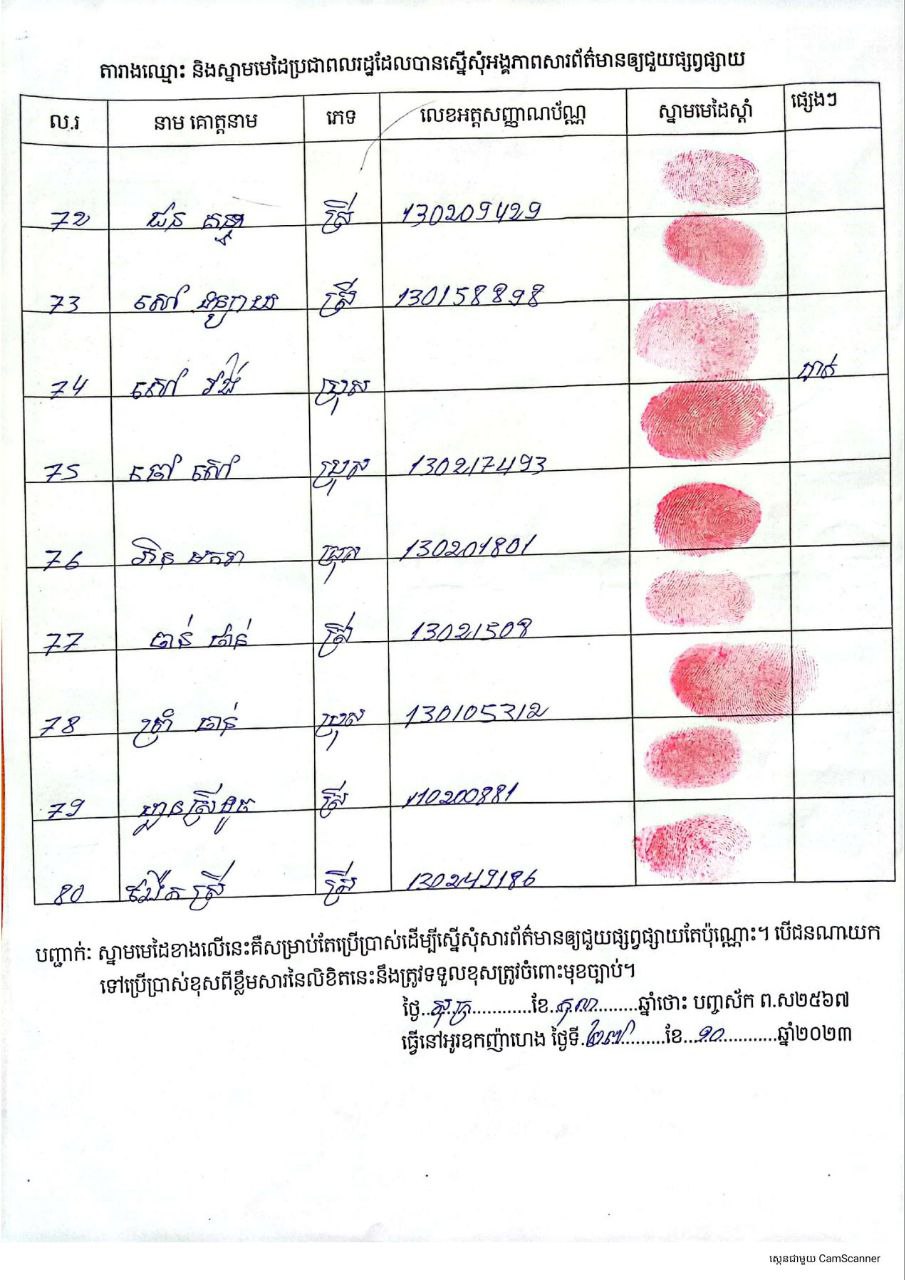 តារាងឈ្មោះ និងស្នាមមេដៃប្រជាពលរដ្ឋដែលបានស្នើសុំអង្គភាពសារព័ត៌មានឲ្យជួយផ្សព្វផ្សាយ
ល.រ នាម គោត្តនាម ភេទ លេខអត្តសញ្ញាណប័ណ្ណ ស្នាមមេដៃស្តាំ ផ្សេងៗ
72 ស្រី 130209429
73 សៅ ស្រី 130158898
74 សៅ ប្រុស
75 ចៅ សៅ ប្រុស 130217493
76 មករា ប្រុស 130201801
77 ចាន់ ថាន់ ស្រី 13021508
78 ប្រុស 130105312
79 ស្រី 110200881
80 ស្រី ស្រី 130249186
បញ្ជាក់: ស្នាមមេដៃខាងលើនេះគឺសម្រាប់តែប្រើប្រាស់ដើម្បីស្នើសុំសារព័ត៌មានឲ្យជួយផ្សព្វផ្សាយតែប៉ុណ្ណោះ។ បើជនណាយក
ទៅប្រើប្រាស់ខុសពីខ្លឹមសារនៃលិខិតនេះនឹងត្រូវទទួលខុសត្រូវចំពោះមុខច្បាប់។
ថ្ងៃ..សុក្រ............ខែ..តុលា........ឆ្នាំថោះ បញ្ចស័ក ព.ស២៥៦៧
ធ្វើនៅអូរឧកញ៉ាហេង ថ្ងៃទី.២៧.........ខែ...១០............ឆ្នាំ២០២៣
ស្កេនជាមួយ CamScanner